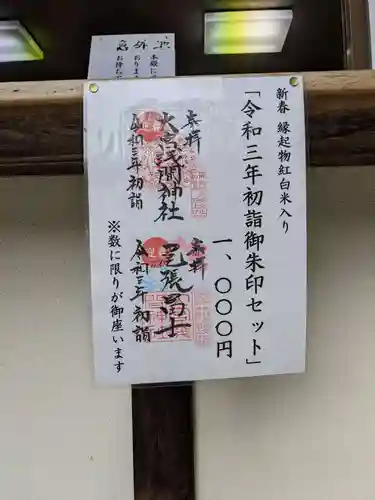 新春 縁起物紅白米入り
「令和三年初詣御朱印セット」
一、〇〇〇円
奉拝
大宮浅間神社
令和三年 初詣
奉拝
尾張冨士
令和三年 初詣
※数に限りが御座います